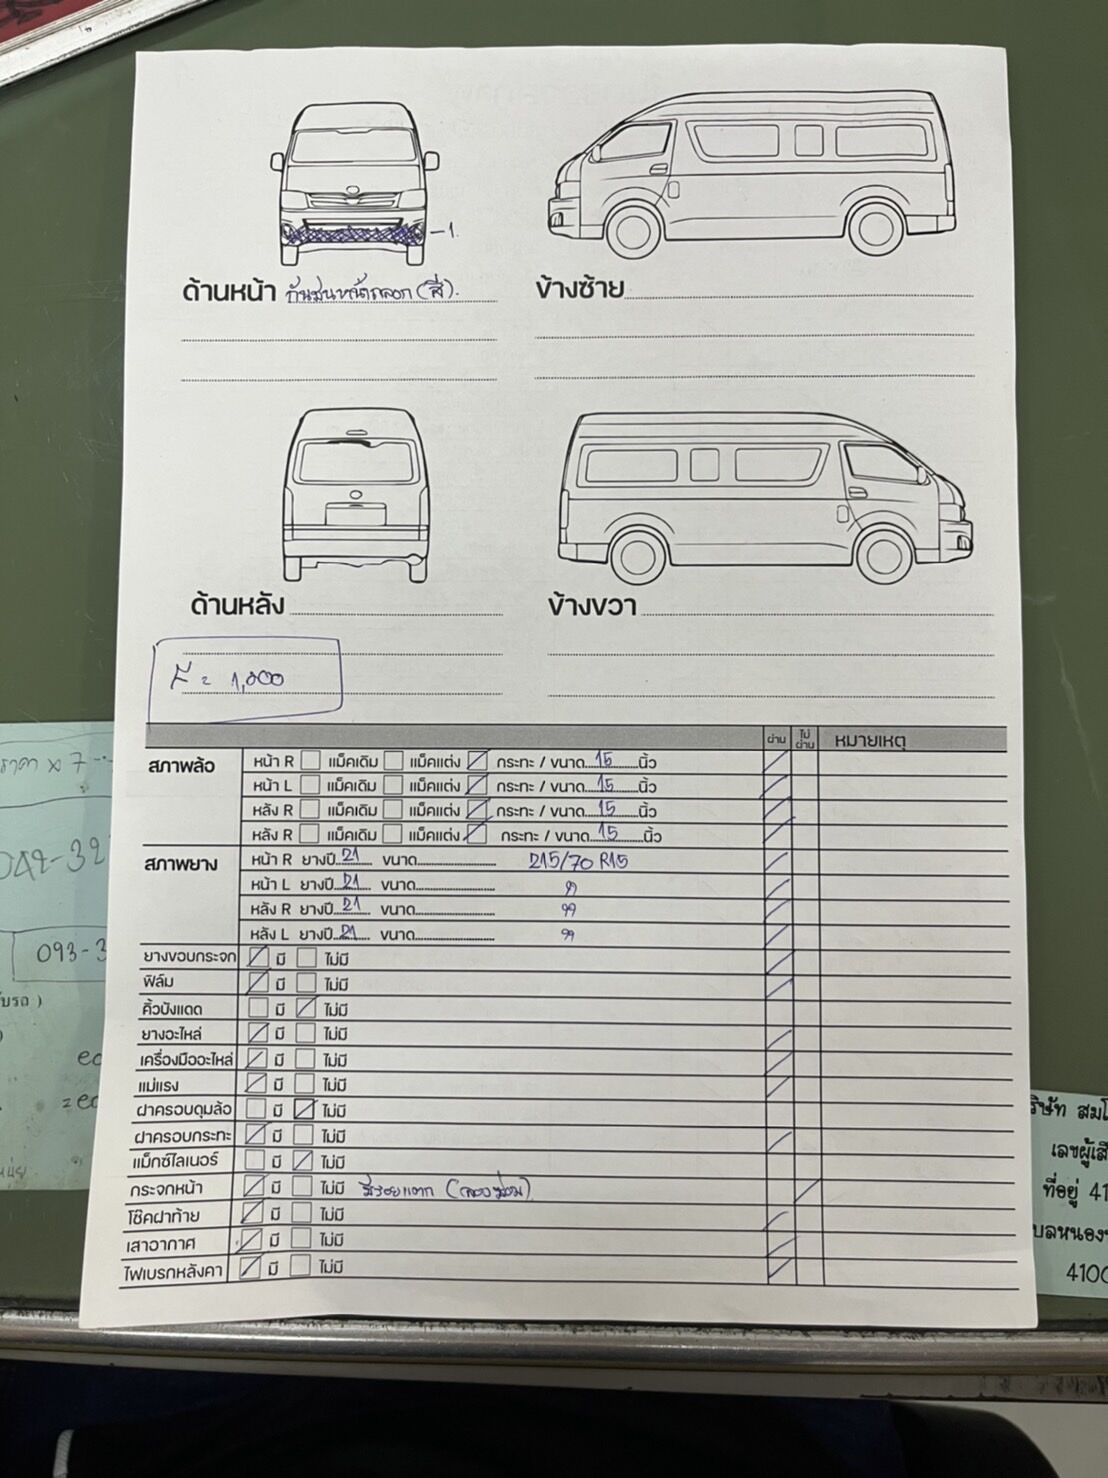 1.
ด้านหน้า กันชนหน้าถลอก (สี). ข้างซ้าย
ด้านหลัง ข้างขวา
= 1,000
ผ่าน ไม่ผ่าน หมายเหตุ
สภาพล้อ หน้า R แม็คเดิม แม็คแต่ง กระทะ / ขนาด 15 นิ้ว
หน้า L แม็คเดิม แม็คแต่ง กระทะ / ขนาด 15 นิ้ว
หลัง R แม็คเดิม แม็คแต่ง กระทะ / ขนาด 15 นิ้ว
หลัง R แม็คเดิม แม็คแต่ง กระทะ / ขนาด 15 นิ้ว
สภาพยาง หน้า R ยางปี 21 ขนาด 215/70 R15
หน้า L ยางปี 21 ขนาด "
หลัง R ยางปี 21 ขนาด "
หลัง L ยางปี 21 ขนาด "
ยางขอบกระจก มี ไม่มี
ฟิล์ม มี ไม่มี
คิ้วบังแดด มี ไม่มี
ยางอะไหล่ มี ไม่มี
เครื่องมืออะไหล่ มี ไม่มี
แม่แรง มี ไม่มี
ฝาครอบดุมล้อ มี ไม่มี
ฝาครอบกระทะ มี ไม่มี
แม็กซ์ไลเนอร์ มี ไม่มี
กระจกหน้า มี ไม่มี มีรอยแตก
โช๊คฝาท้าย มี ไม่มี
เสาอากาศ มี ไม่มี
ไฟเบรกหลังคา มี ไม่มี
ราคา x 7
042-32
093-3
บรถ )
ec
=ec
ริษัท สมโ
เลขผู้เสี
ที่อยู่ 41
บลหนอง
4100